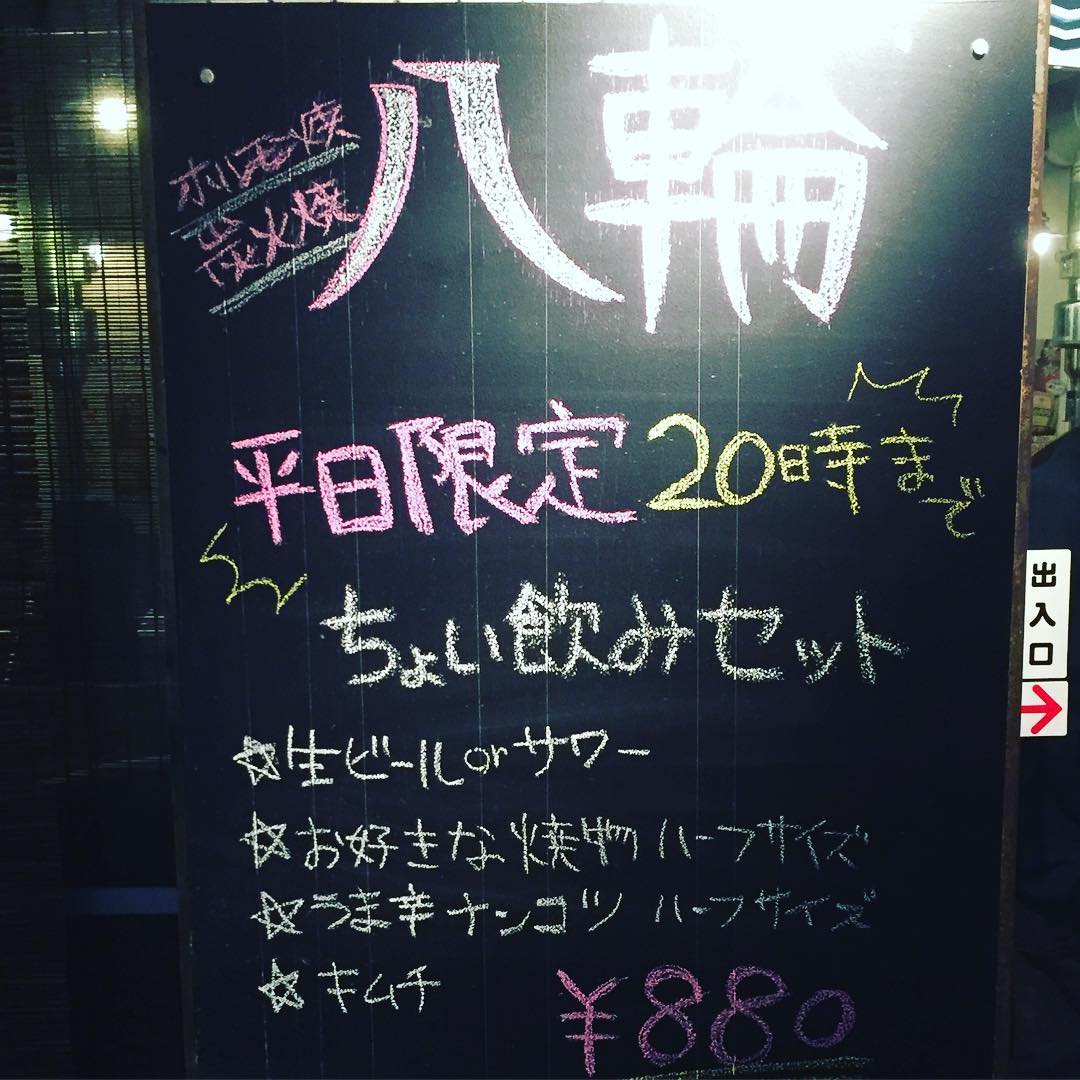 ホルモン焼
炭火焼
八輪
平日限定 20時まで
ちょい飲みセット
☆生ビールorサワー
☆お好きな焼物 ハーフサイズ
☆うま辛ナンコツ ハーフサイズ
☆キムチ
¥880
出入口